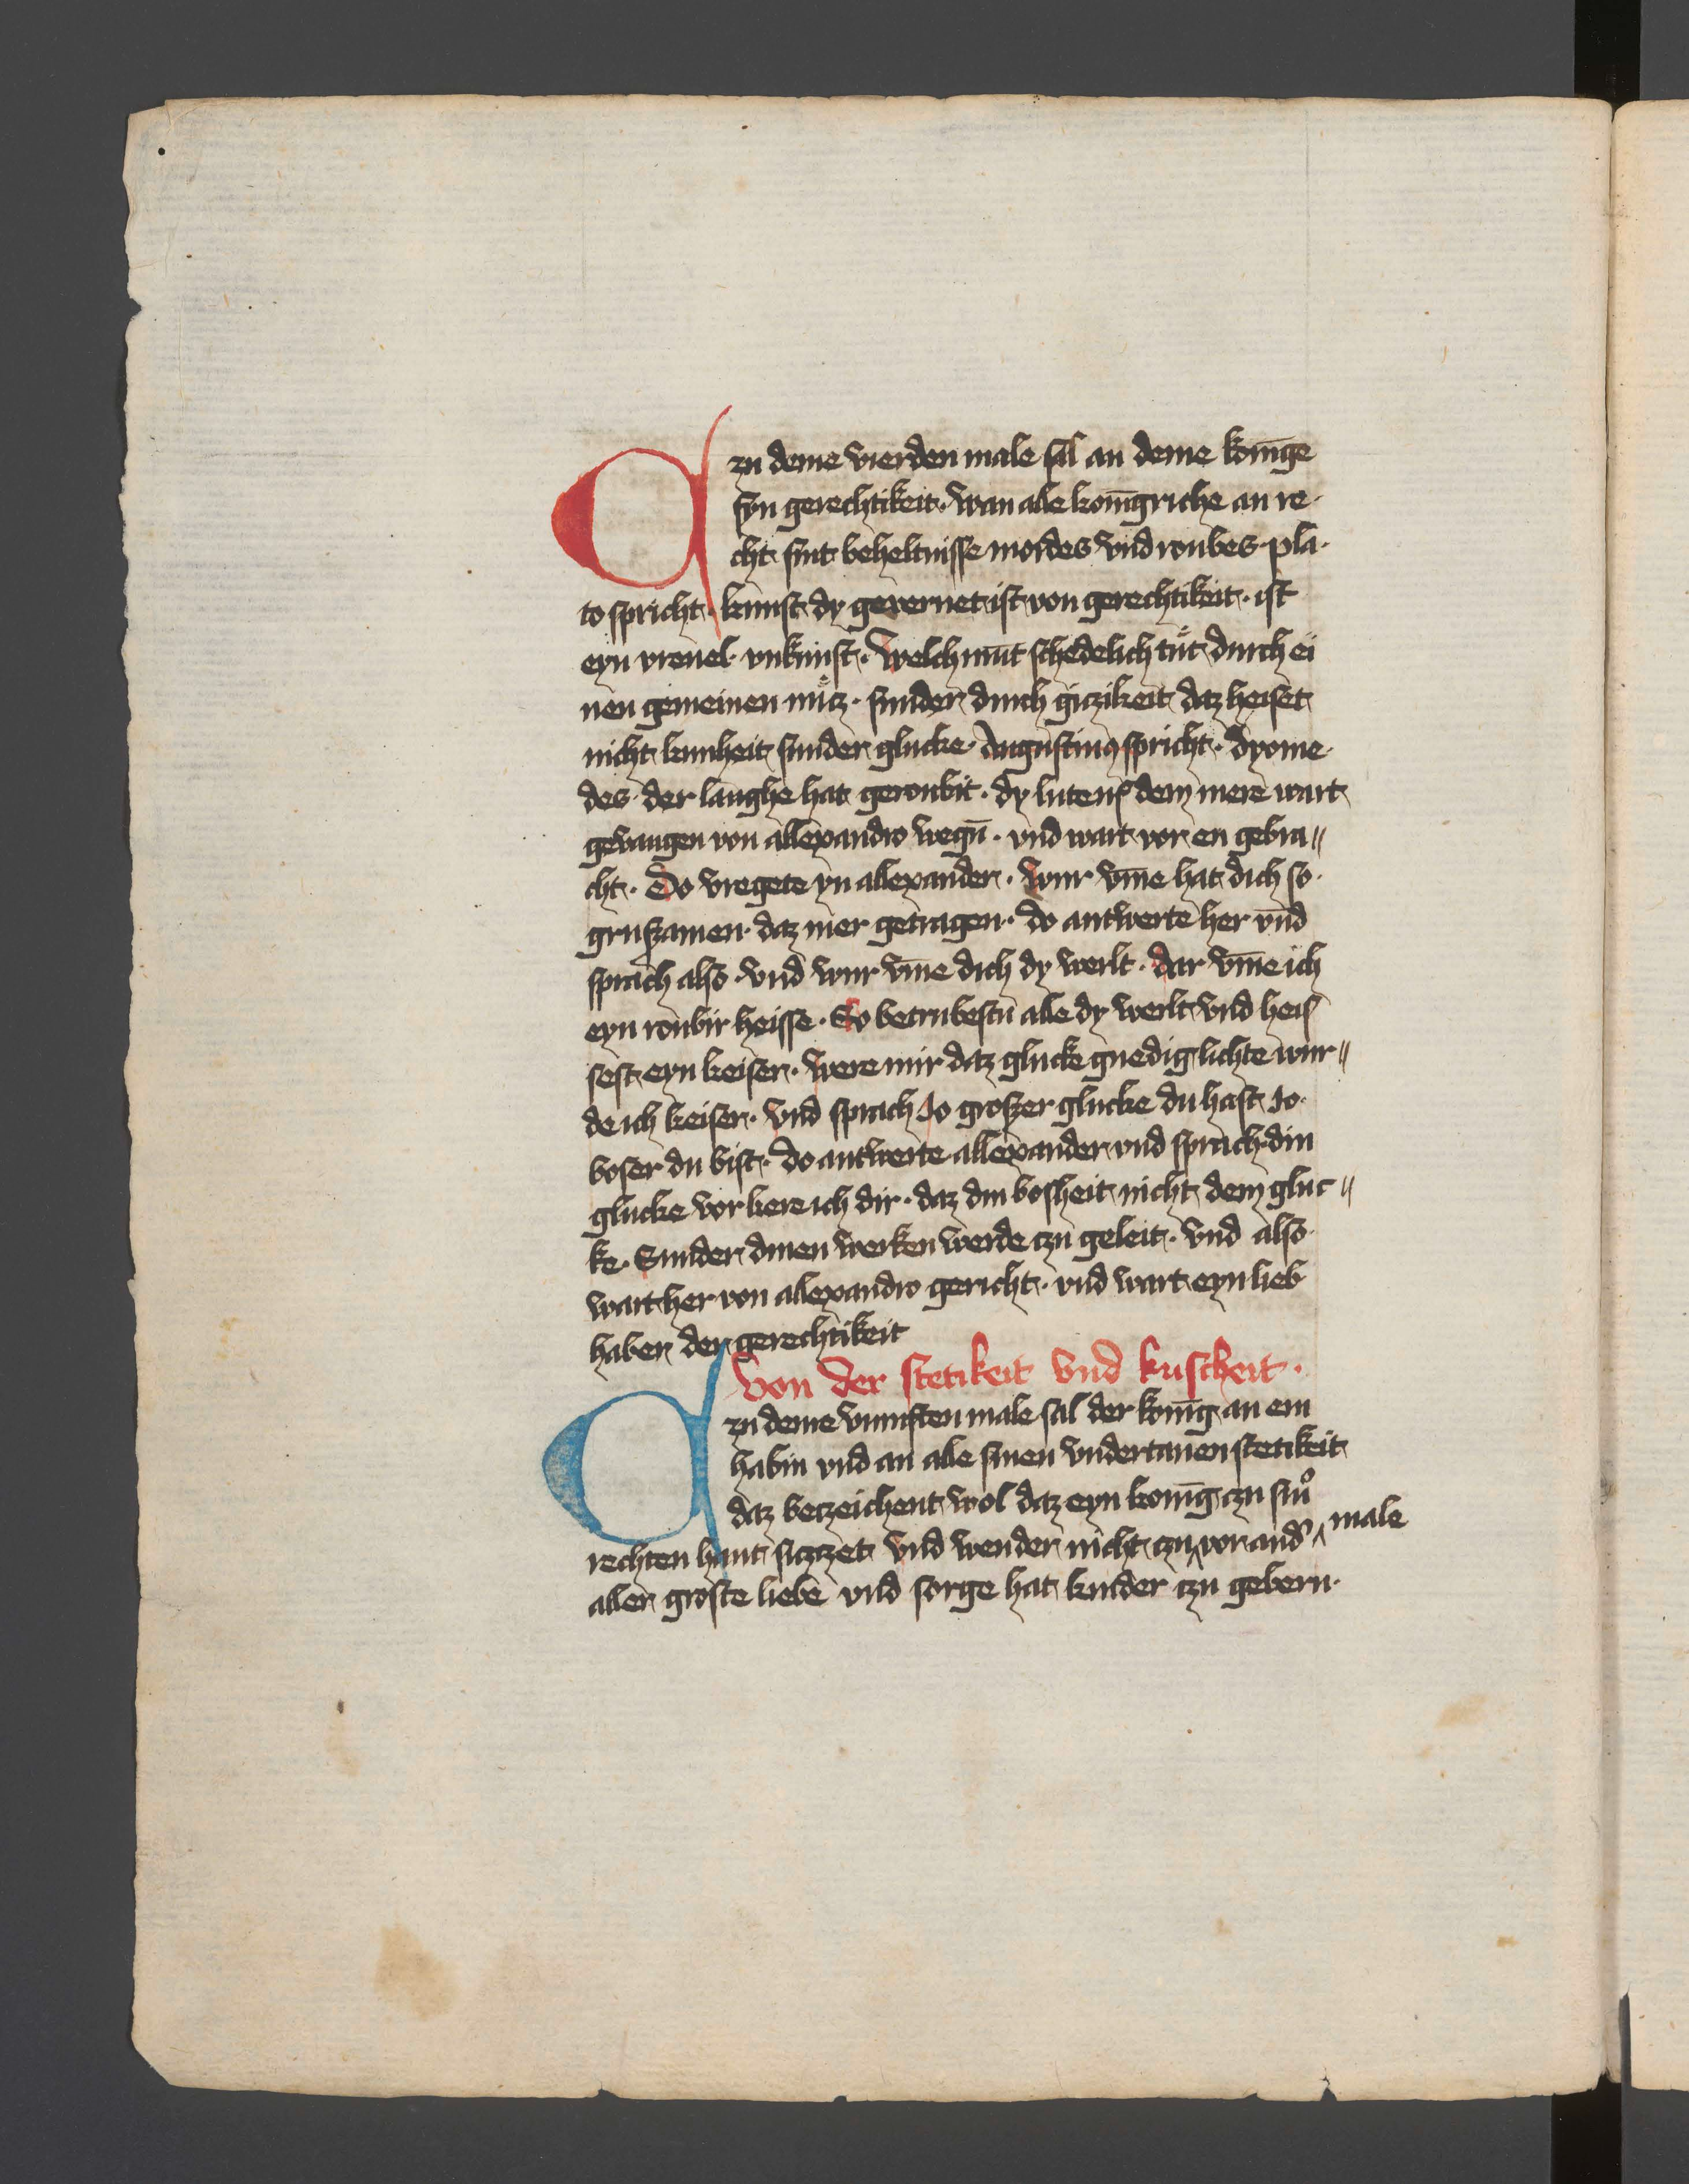 Czu deme vierden male sal an deme konīge
syn gerechtikeit· wan alle konīgriche an re-
cht sint beheltnisse mordes vnd roubes· pla-
to spricht· kunst dy gevernet ist von gerechtikeit· ist
eyn vreuel· vnkunst· Welch mut schedelich tut durch ei
nen gemeinen nucz· sunder durch giczikeit daz heiset
nicht kunheit sunder glucke· Augustinus spricht· dyome-
des· der langhe hat geroubit· dy lute uf dem mere wart
gevangen von allexandro wegn̄· vnd wart vor en gebra〃
cht· Do vregete yn allexander· wur vm̄e hat dich so·
grusamen· daz mer getragen· do antwerte her vnd
sprach also· vnd wur vm̄e dich dy werlt· dar vm̄e ich
eyn roubir heisse· So betrubestu alle dy werlt vnd heis
sest eyn keiser· were mir daz glucke gnedig lichte wur〃
de ich keiser· vnd sprach Jo groser glucke du hast Jo·
boser du bist· do antwerte allexander vnd sprach· din
glucke vorkere ich dir· daz din bosheit nicht dem gluc〃
ke· Sunder dinen werken werde czu geleit· vnd also·
wart her von allexandro gericht· vnd wart eyn lieb
haber der gerechtikeit
Von der stetikeit vnd kuscheit·
Czu deme vumften male sal der konīg an em
habin vnd an alle sinen vndertanen stetikeit
daz beczeichent wol daz eyn konīg czu sin̄
rechten hant siczczet vnd wender nicht czu vor and' male
aller groste liebe vnd sorge hat kinder czu gebern·